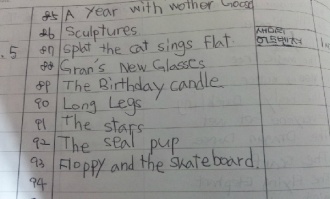 85 A Year with Mother Goose
86 Sculptures
.5 87 Splat the cat sings flat
88 Gran's New Glasses
89 The Birthday candle
90 Long Legs
91 The stars
92 The seal pup
93 Floppy and the skateboard
94